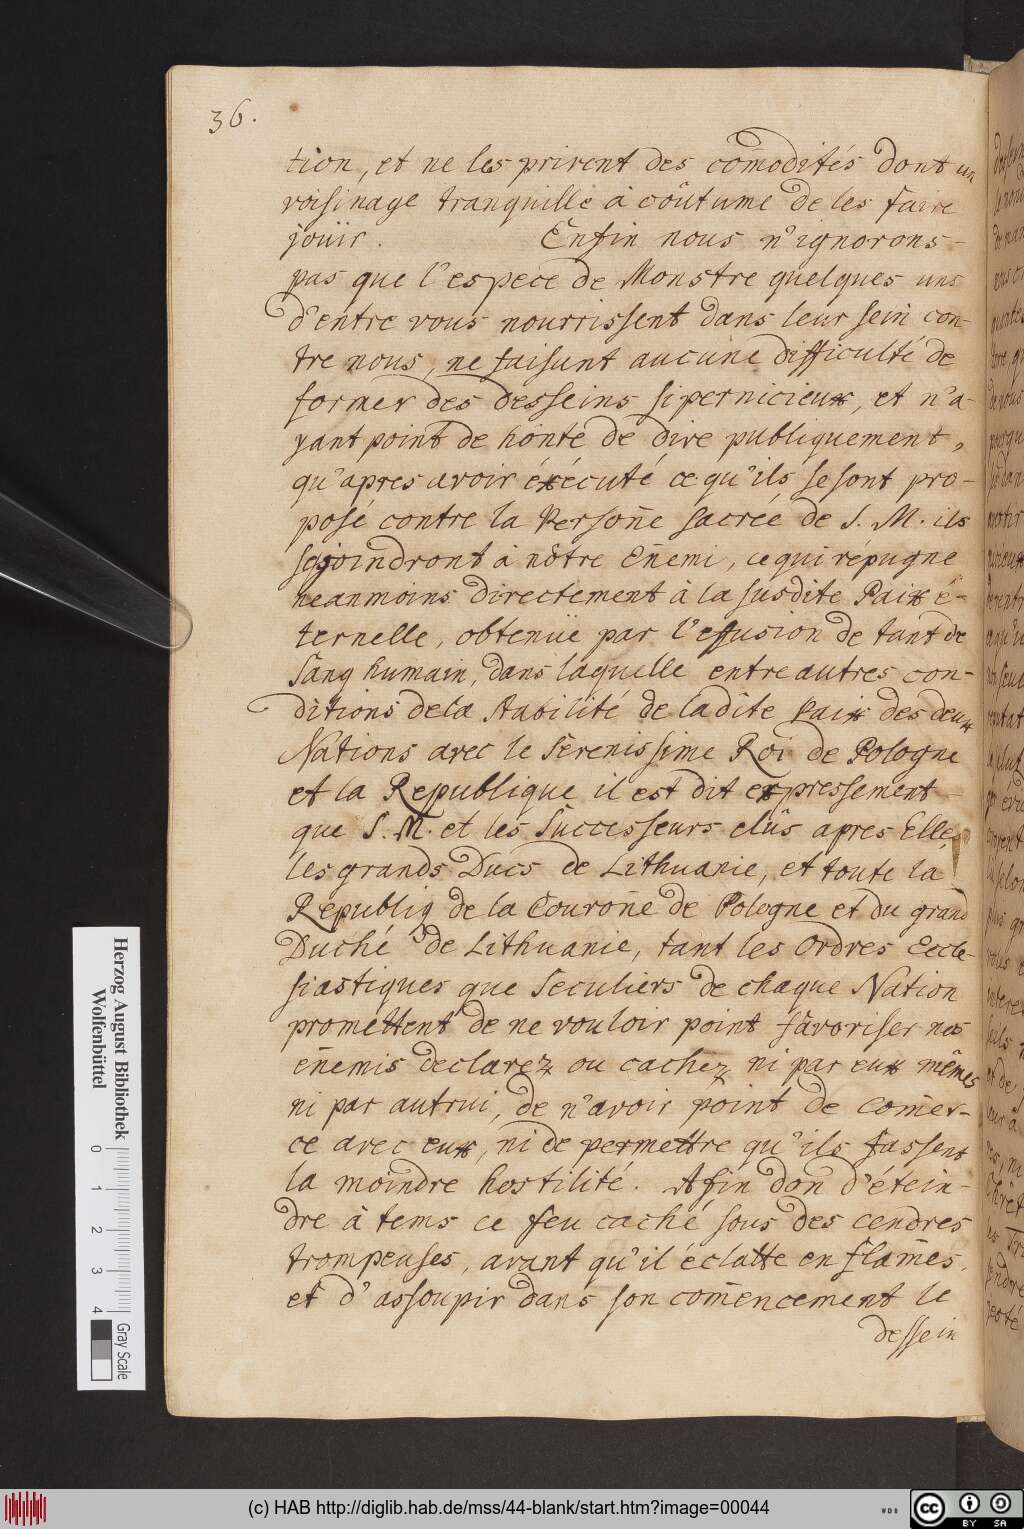 36.
tion, et ne les prirent des com̃odités dont un
voisinage tranquille à coûtume de les faire
jouir. Enfin nous n'ignorons-
pas que l'espece de Monstre quelques uns
d'entre vous nourrissent dans leur sein con-
tre nous, ne faisant aucune difficulté de
former des desseins si pernicieux, et n'a-
yant point de honte de dire publiquement,
qu'apres avoir éxécuté ce qu'ils se sont pro-
posé contre la Persoñe sacrée de S. M. ils
se joindront à nôtre Eñemi, ce qui répugne
neanmoins directement à la susdite Paix é-
ternelle, obtenüe par l'effusion de tant de
sang humain, dans laquelle entre autres con-
ditions de la Stabilité de la dite Paix des deux
Nations avec le Serenissime Roi de Pologne
et la Republique il est dit expressement-
que S. M. et les Successeurs elûs apres Elle,
les grands Ducs de Lithuanie, et toute la
Républiq de la Couroñe de Pologne et du grand
Duché de Lithuanie, tant les Ordres Eccle-
siastiques que Seculiers de chaque Nation
promettent de ne vouloir point favoriser nos
eñemis declarez ou cachez, ni par eux mêmes
ni par autrui, de n'avoir point de Com̃er-
ce avec eux, ni de permettre qu'ils fassent
la moindre hostilité. Afin don d'étein-
dre à tems ce feu caché sous des cendres
trompeuses, avant qu'il éclatte en flam̃es,
et d'assoupir dans son com̃encement le
dessein
Herzog August Bibliothek
Wolfenbüttel
0 1 2 3 4
Gray Scale
(c) HAB http://diglib.hab.de/mss/44-blank/start.htm?image=00044
WDB
cc BY SA